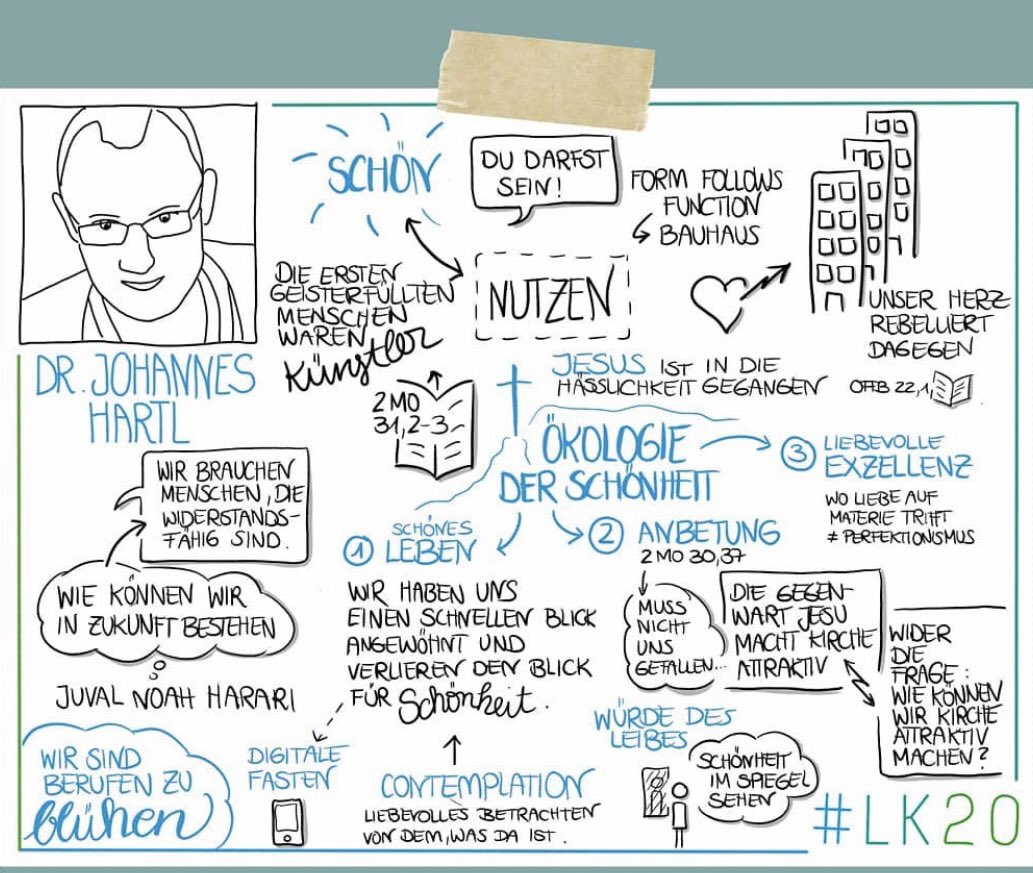 SCHÖN
DU DARFST
SEIN!
FORM FOLLOWS
FUNCTION
↳ BAUHAUS
DIE ERSTEN
GEISTERFÜLLTEN
MENSCHEN
WAREN
Künstler
NUTZEN
UNSER HERZ
REBELLIERT
DAGEGEN
DR. JOHANNES
HARTL
2 MO
31,2-3
JESUS IST IN DIE
HÄSSLICHKEIT GEGANGEN
OFFB 22,1
ÖKOLOGIE
DER SCHÖNHEIT
3 LIEBEVOLLE
EXZELLENZ
WO LIEBE AUF
MATERIE TRIFFT
≠ PERFEKTIONISMUS
WIR BRAUCHEN
MENSCHEN, DIE
WIDERSTANDS-
FÄHIG SIND.
WIE KÖNNEN WIR
IN ZUKUNFT BESTEHEN
JUVAL NOAH HARARI
1 SCHÖNES
LEBEN
WIR HABEN UNS
EINEN SCHNELLEN BLICK
ANGEWÖHNT UND
VERLIEREN DEN BLICK
FÜR Schönheit.
2 ANBETUNG
2 MO 30,37
MUSS
NICHT
UNS
GEFALLEN...
DIE GEGEN-
WART JESU
MACHT KIRCHE
ATTRAKTIV
WIDER
DIE
FRAGE:
WIE KÖNNEN
WIR KIRCHE
ATTRAKTIV
MACHEN?
WIR SIND
BERUFEN ZU
blühen
DIGITALE
FASTEN
CONTEMPLATION
LIEBEVOLLES BETRACHTEN
VON DEM, WAS DA IST.
WÜRDE DES
LEIBES
SCHÖNHEIT
IM SPIEGEL
SEHEN
#LK20